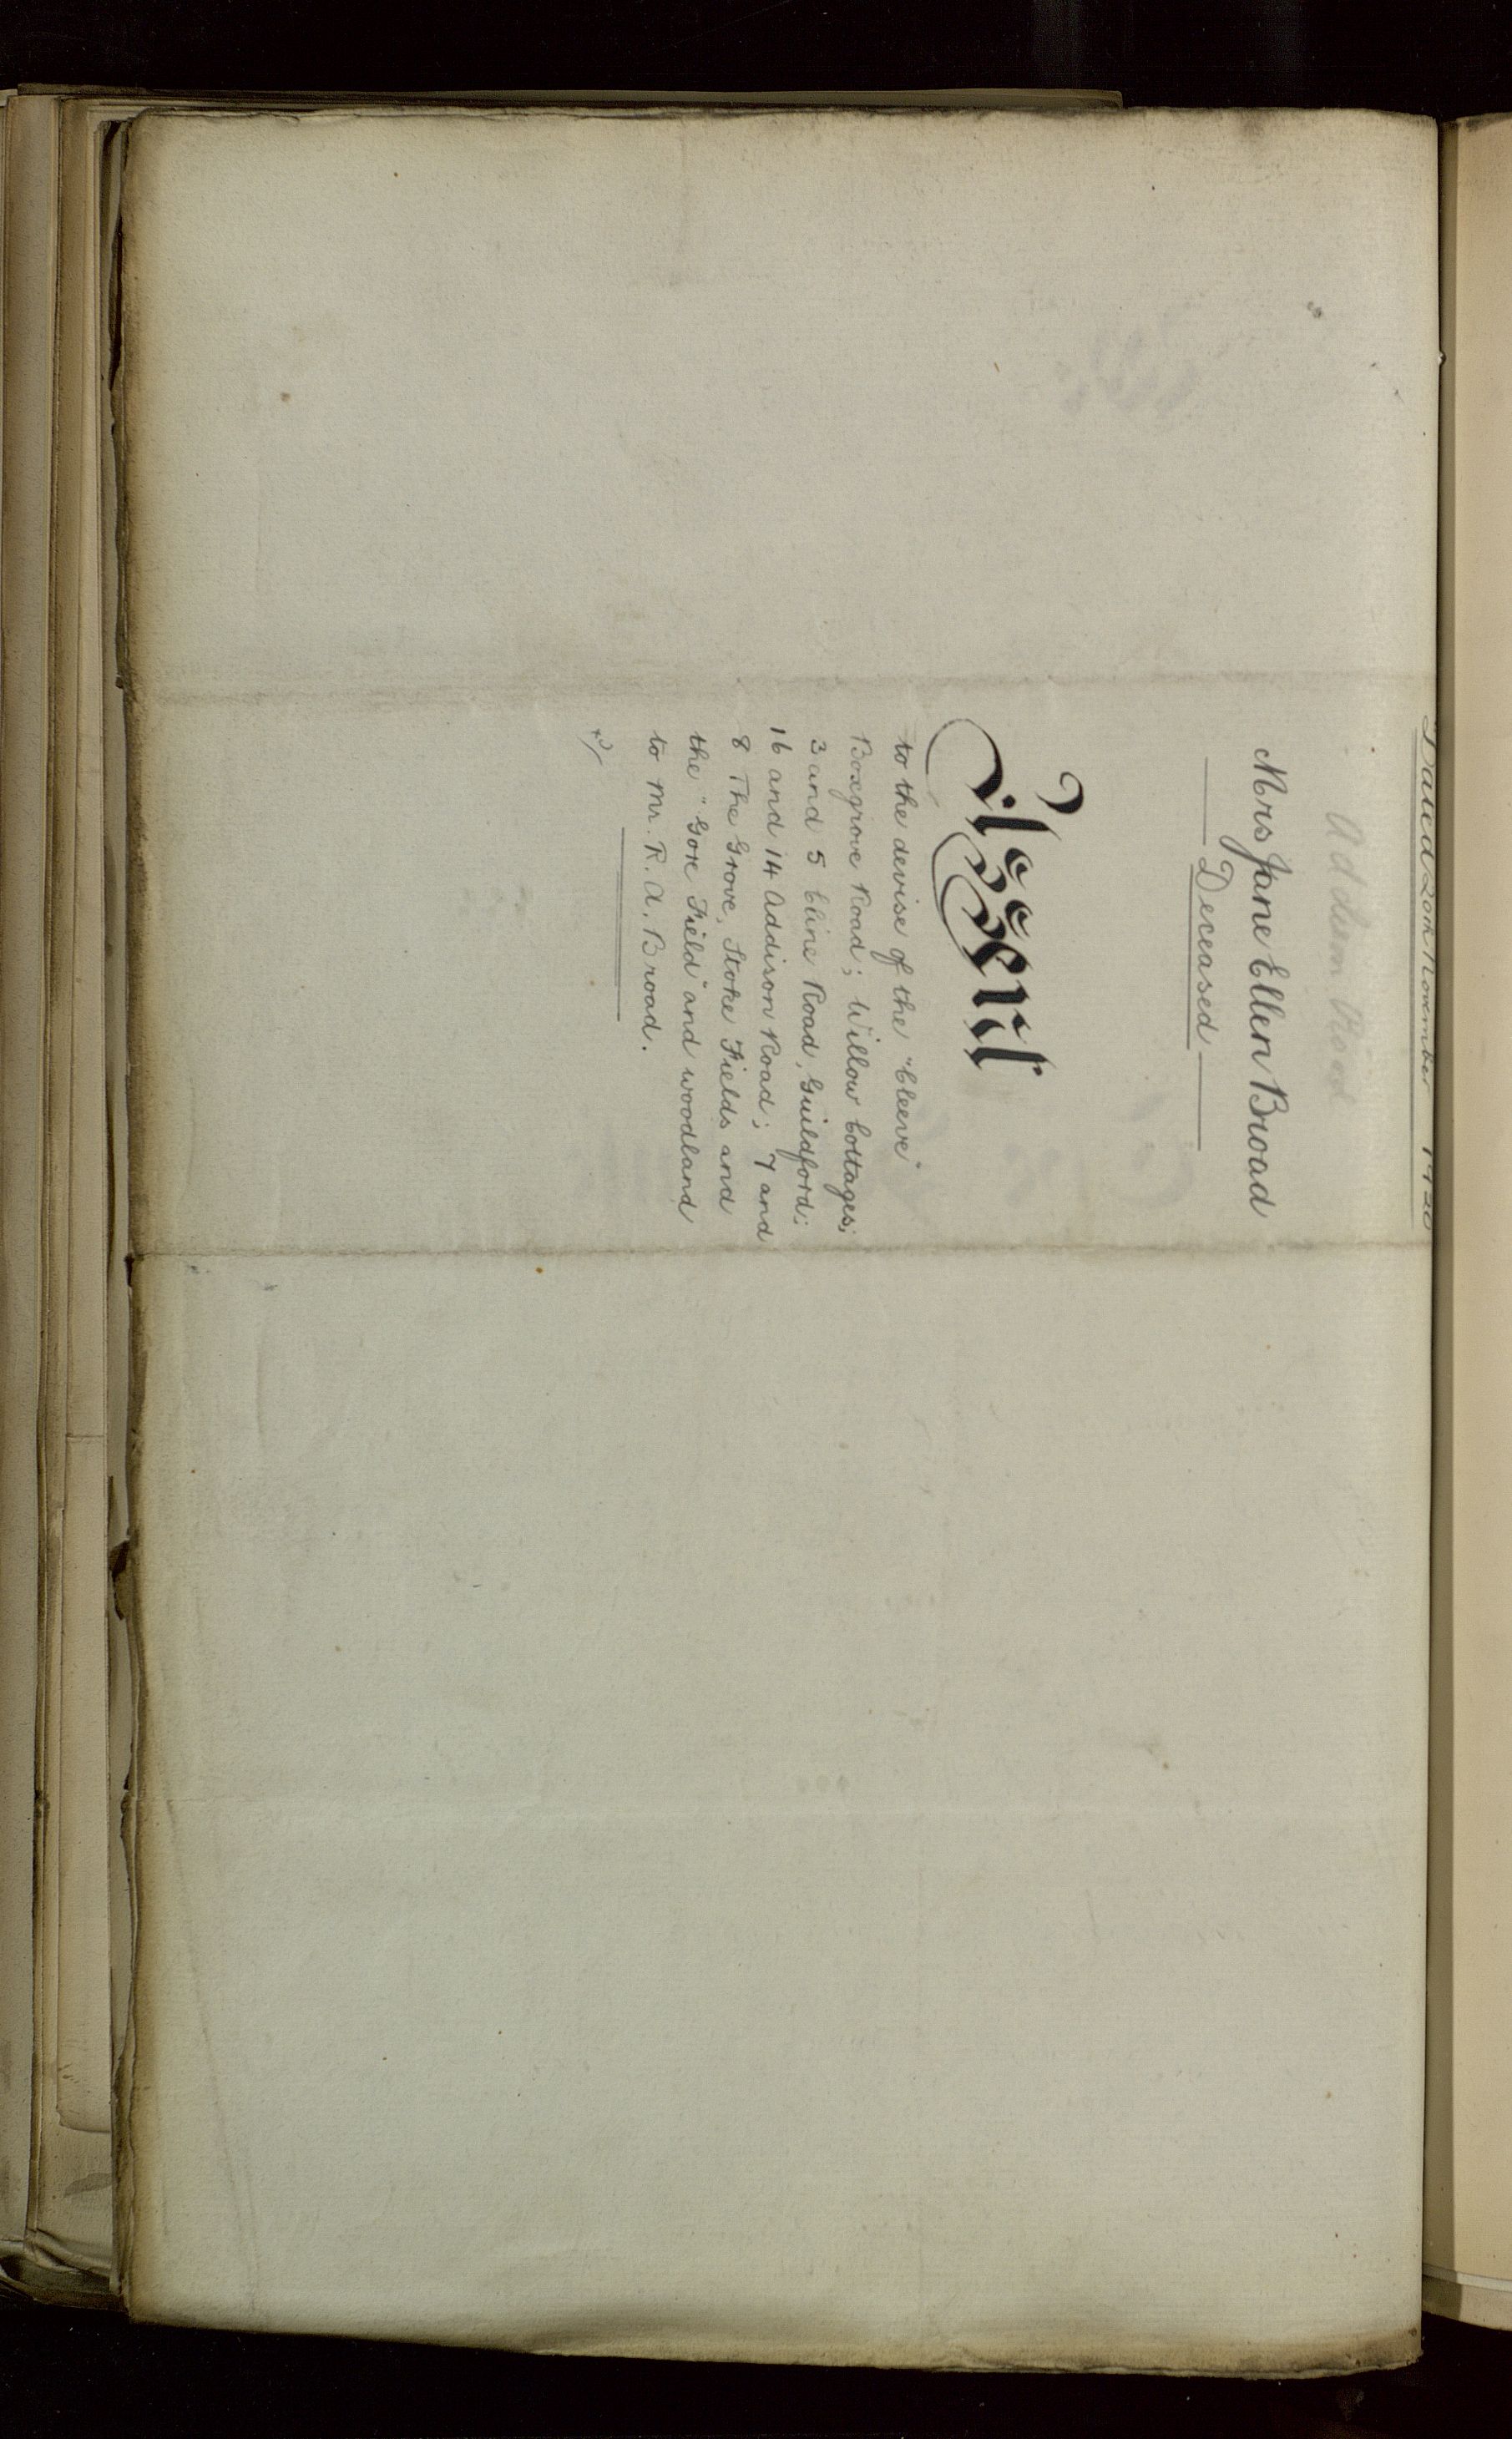 Dated 20th November 1920
Addison Road
Mrs Jane Ellen Broad
Deceased
Assent
to the devise of the "Cleeve"
Boxgrove Road; Willow Cottages;
3 and 5 Cline Road, Guildford;
16 and 14 Addison Road; 7 and
8 The Grove, Stoke Fields and
the "Gore Field" and woodland
to Mr. R. A. Broad.